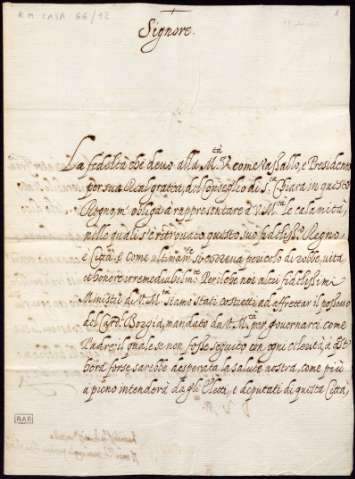 RM CAJA 66/12
Signore.
La fedeltà che devo alla M.tà V.ra come Vassallo, e Presidente
per sua Real gratia, del Conseglio di S.ta Chiara in questo
Regno m'obliga à rappresentare à V. M.tà le calamità,
nelle quali s'è ritrovato questo suo fideliss.o Regno
e Città, e come ultimam.te si vedeva perderlo di robbe, vita
et honore irremediabilm.te Per il che noi altri fidelissimi
Ministri di V. M. siamo stati costretti ad affrettar il possesso
del Card.l Borgia, mandato da V. M.tà per governarci come
Padre, il quale se non fosse seguito con ogni celerità à q.est'
hora forse sarebbe desperata la salute nostra, come più
à pieno intenderà da gli Eletti, e deputati di questa Città,
RAE